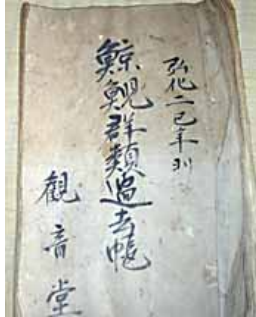 弘化二巳年ヨリ
鯨鯢群類過去帳
観音堂